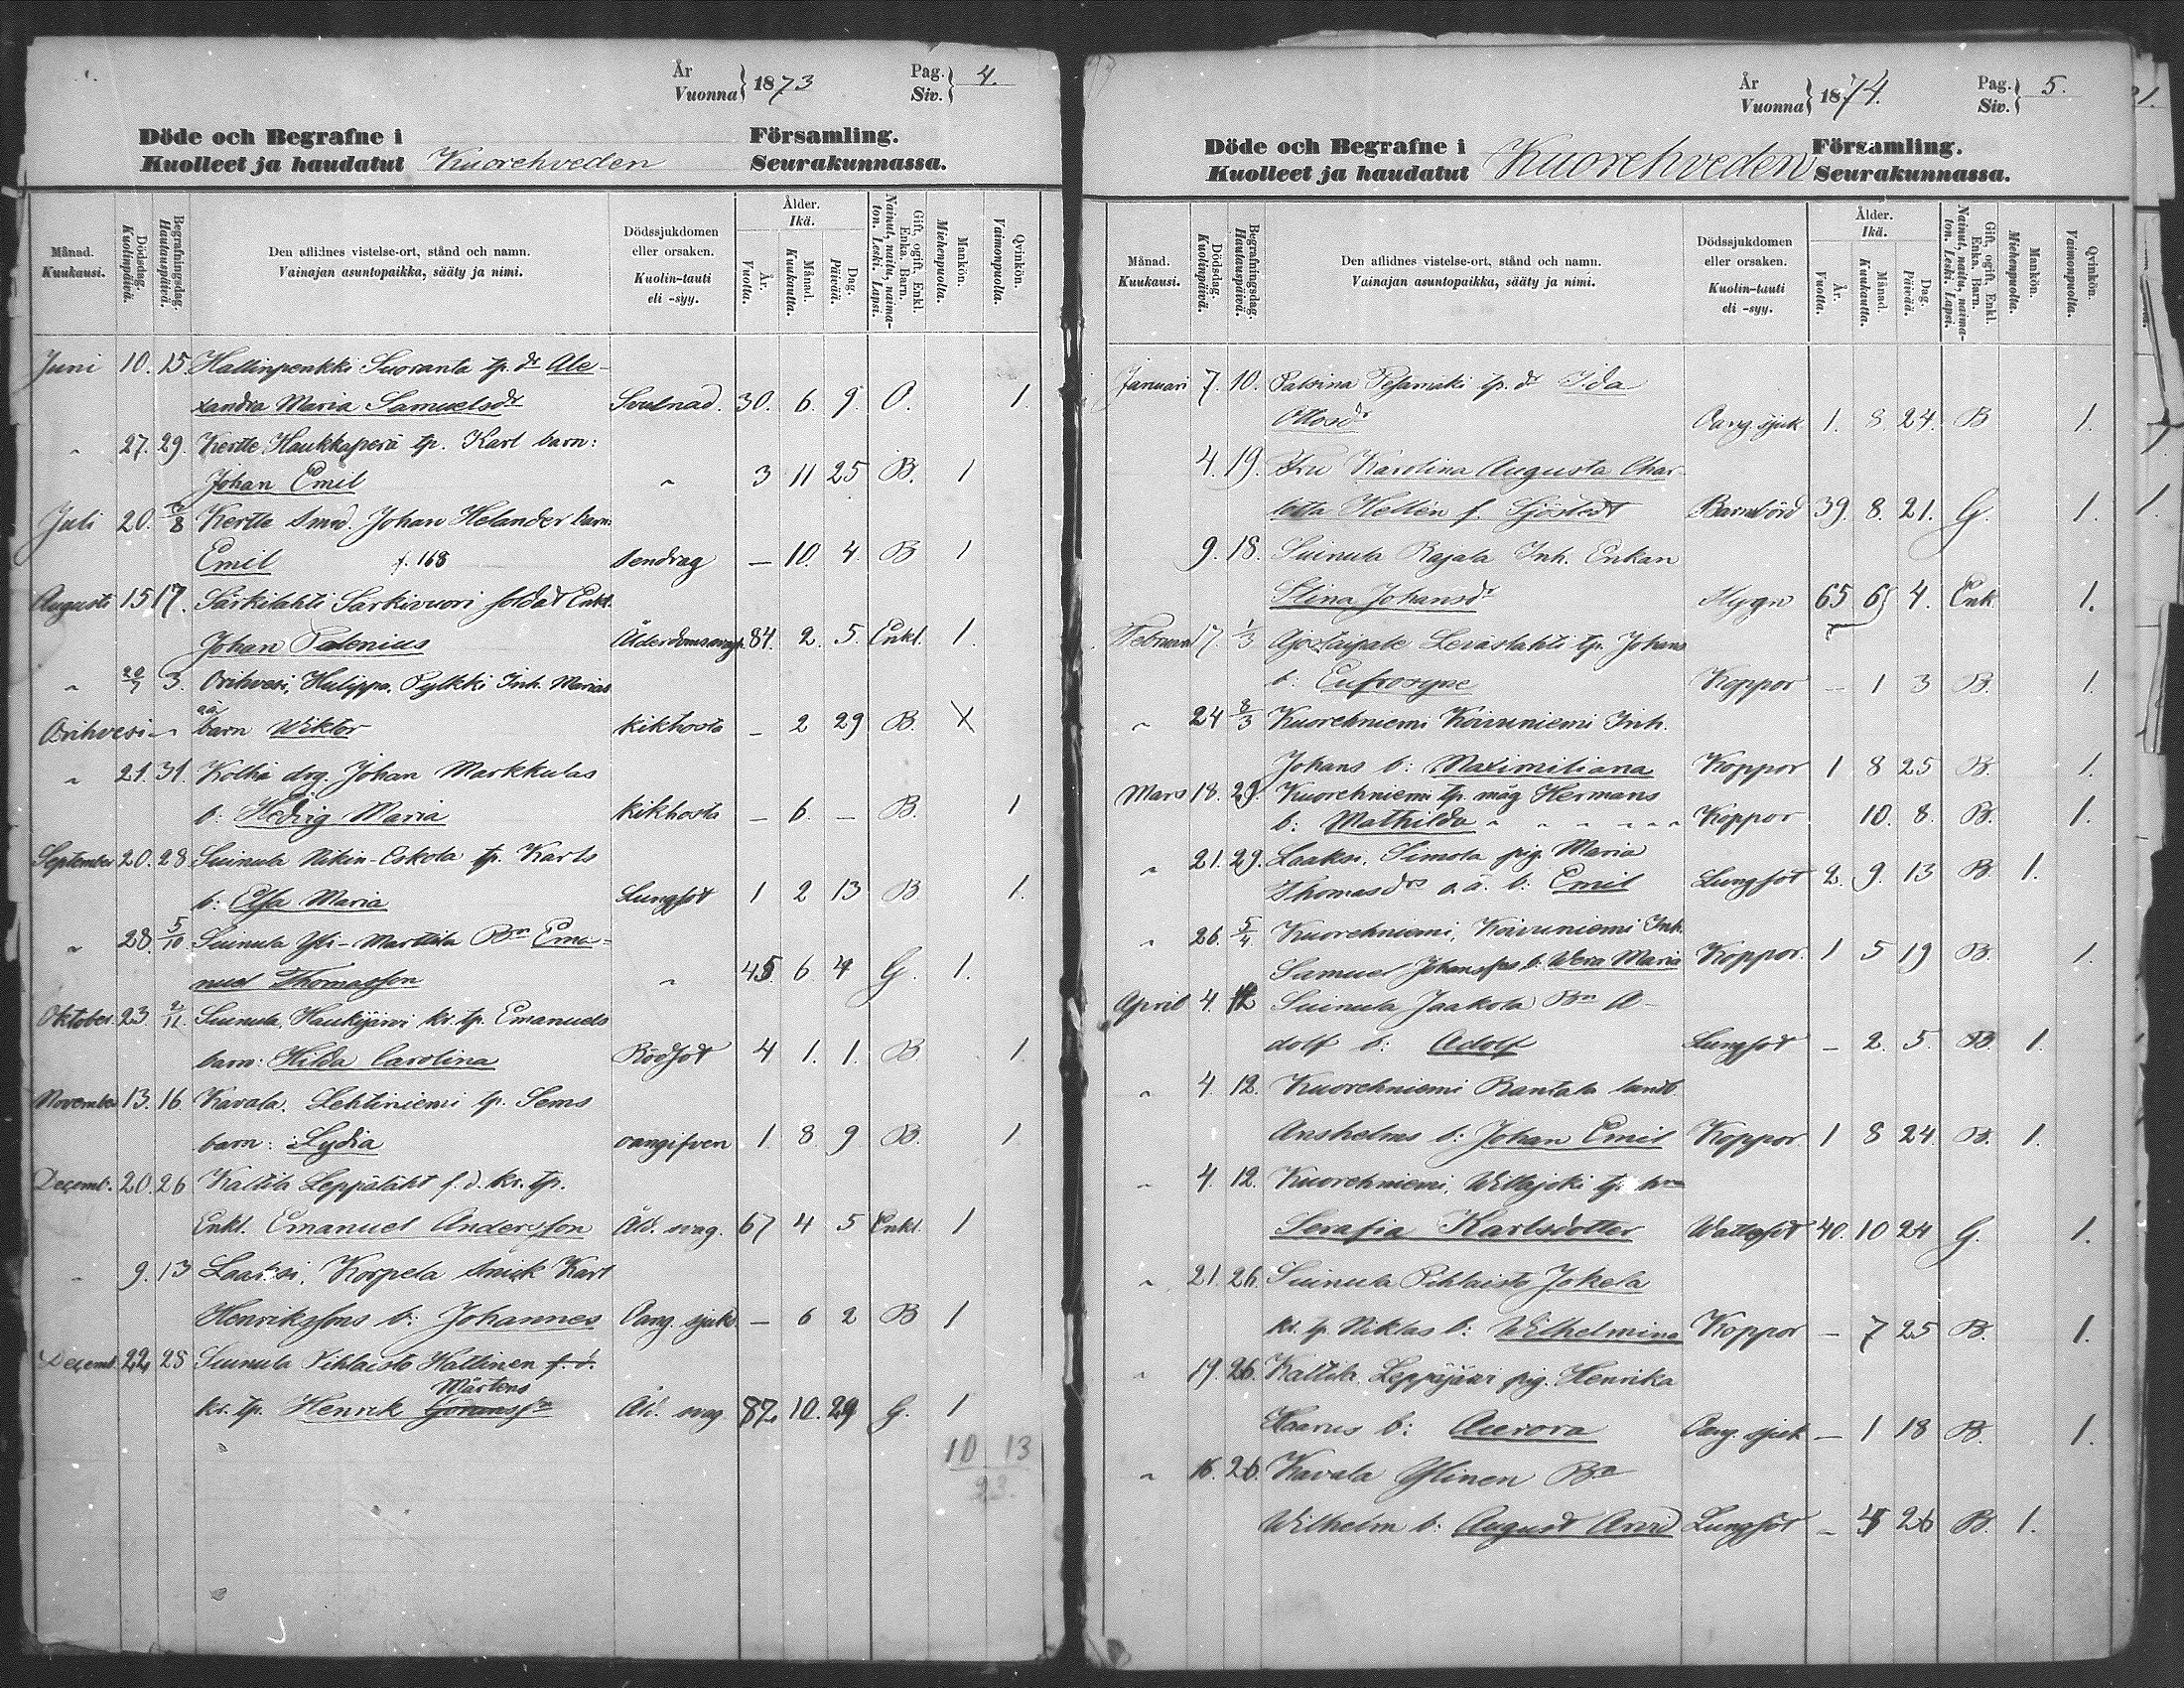 År
Vuonna } 1873
Pag.
Siv. } 4.
Döde och Begrafne i Församling.
Kuolleet ja haudatut Kuorehveden Seurakunnassa.
Månad. Kuukausi.
Dödsdag. Kuolinpäivä.
Begrafningsdag. Hautauspäivä.
Den aflidnes vistelse-ort, stånd och namn.
Vainajan asuntopaikka, sääty ja nimi.
Dödssjukdomen eller orsaken.
Kuolin-tauti eli -syy.
Ålder. Ikä.
År. Vuotta.
Månad. Kuukautta.
Dag. Päivää.
Gift, ogift, Enkl. Enka. Barn.
Nainut, naitu, naimaton. Leski. Lapsi.
Mankön. Miehenpuolta.
Qvinkön. Vaimonpuolta.
Juni 10. 15. Hallinpenkki Suoranta tp. dr Ale-
xandra Maria Samuelsdr Svulnad. 30. 6. 9. O. 1.
" 27. 29. Kertte Haukkaperä tp. Karl barn:
Johan Emil " 3 11 25 B. 1
Juli 20. Kertte Smed. Johan Helander barn
Emil f. 168 Sendrag — 10. 4. B 1
Augusti 15 17. Särkilahti Särkivuori soldat Enkl.
Johan Palenius Ålderdomssvagh. 84. 2. 5. Enkl. 1.
" 3. Orihvesi, Hulippa, Pylkki Inh. Marias
Orihvesi " oä. barn Wiktor kikhosta — 2 29 B. X
" 21. 31. Kolhi drg. Johan Markkulas
b: Hedvig Maria kikhosta — 6. — B. 1
September 20. 28 Suinula Nikin-Eskola tp. Karls
b: Elsa Maria Lungsot 1 2 13 B 1.
" 28. 5/10 Suinula Yli-Marttila Bn Ema-
nuel Thomasson " 45. 6 4 G. 1.
Oktober. 23 2/11. Suinula, Haukijärvi kr. tp. Emanuels
barn: Hilda Carolina Rödsot 4 1. 1. B 1
November 13. 16. Kavala. Lehtiniemi tp. Sems
barn: Lydia oangifven 1 8. 9. B. 1
Decemb. 20. 26 Kaltila Leppälaht f.d. kr. tp.
Enkl. Emanuel Andersson Åld. svag. 67 4 5 Enkl. 1
" 9. 13 Laaksi, Korpela Karl
Henrikssons b: Johannes Oang. sjukd — 6 2 B 1
Decemb. 22. 28 Suinula Pihlaisto Hallinen f.d.
Mårtens
kr. tp. Henrik Göranssn Åld. svag 87. 10. 29 G. 1
10 13
23.
År
Vuonna } 1874.
Pag.
Siv. } 5.
Döde och Begrafne i Församling.
Kuolleet ja haudatut Kuorehveden Seurakunnassa.
Månad. Kuukausi.
Dödsdag. Kuolinpäivä.
Begrafningsdag. Hautauspäivä.
Den aflidnes vistelse-ort, stånd och namn.
Vainajan asuntopaikka, sääty ja nimi.
Dödssjukdomen eller orsaken.
Kuolin-tauti eli -syy.
Ålder. Ikä.
År. Vuotta.
Månad. Kuukautta.
Dag. Päivää.
Gift, ogift, Enkl. Enka. Barn.
Nainut, naitu, naimaton. Leski. Lapsi.
Mankön. Miehenpuolta.
Qvinkön. Vaimonpuolta.
Januari 7. 10. Pesämäki tp. dr Ida
Ottosdr Oang. sjuk. 1. 8. 24. B 1.
4. 19. Fru Karolina Augusta Char-
lotta Hellén f. Sjöstedt Barnbörd 39. 8. 21. G. 1.
9. 18. Suinula Rajala Inh. Enkan
Stina Johansdr Hygn 65 6 4. Enk 1.
Februari 17. 1/3 Levaslahti tp. Johans
b: Eufrosyne Koppor — 1 3 B. 1.
" 24 8/3 Kuorehniemi Koivuniemi Inh.
Johans b: Maximiliana Koppor 1 8 25 B. 1.
Mars 18. 29. Kuorehniemi tp. måg Hermans
b: Mathilda " " " " " " Koppor 10. 8. B. 1.
" 21. 29. Laaksi, Simola pig. Maria
Thomasdrs o.ä. b: Emil Lungsot 2. 9. 13 B. 1.
" 26. 5/4 Kuorehniemi, Koivuniemi Inh.
Samuel Johanssos b. Wera Maria Koppor. 1 5 19 B. 1.
April 4. 12 Suinula Jaakola Bn A-
dolf b: Adolf Lungsot — 2. 5. B. 1.
" 4. 12. Kuorehniemi Rantala landb
Anshelms b: Johan Emil Koppor. 1 8 24. B. 1.
" 4. 12. Kuorehniemi, Willajoki tp. hru
Serafia Karlsdotter Wattusot 40. 10 24 G. 1.
" 21. 26. Suinula Pihlaisto Jokela
kr. tp Niklas b: Wilhelmina Koppor — 7 25 B. 1.
" 19. 26. Kaltila. Leppäjäri pig. Henrika
b: Aurora Oang. sjuk — 1 18 B. 1.
" 16. 26. Kavala Ylinen Bn
Wilhelm b: August Arvid Lungsot — 26 B. 1.